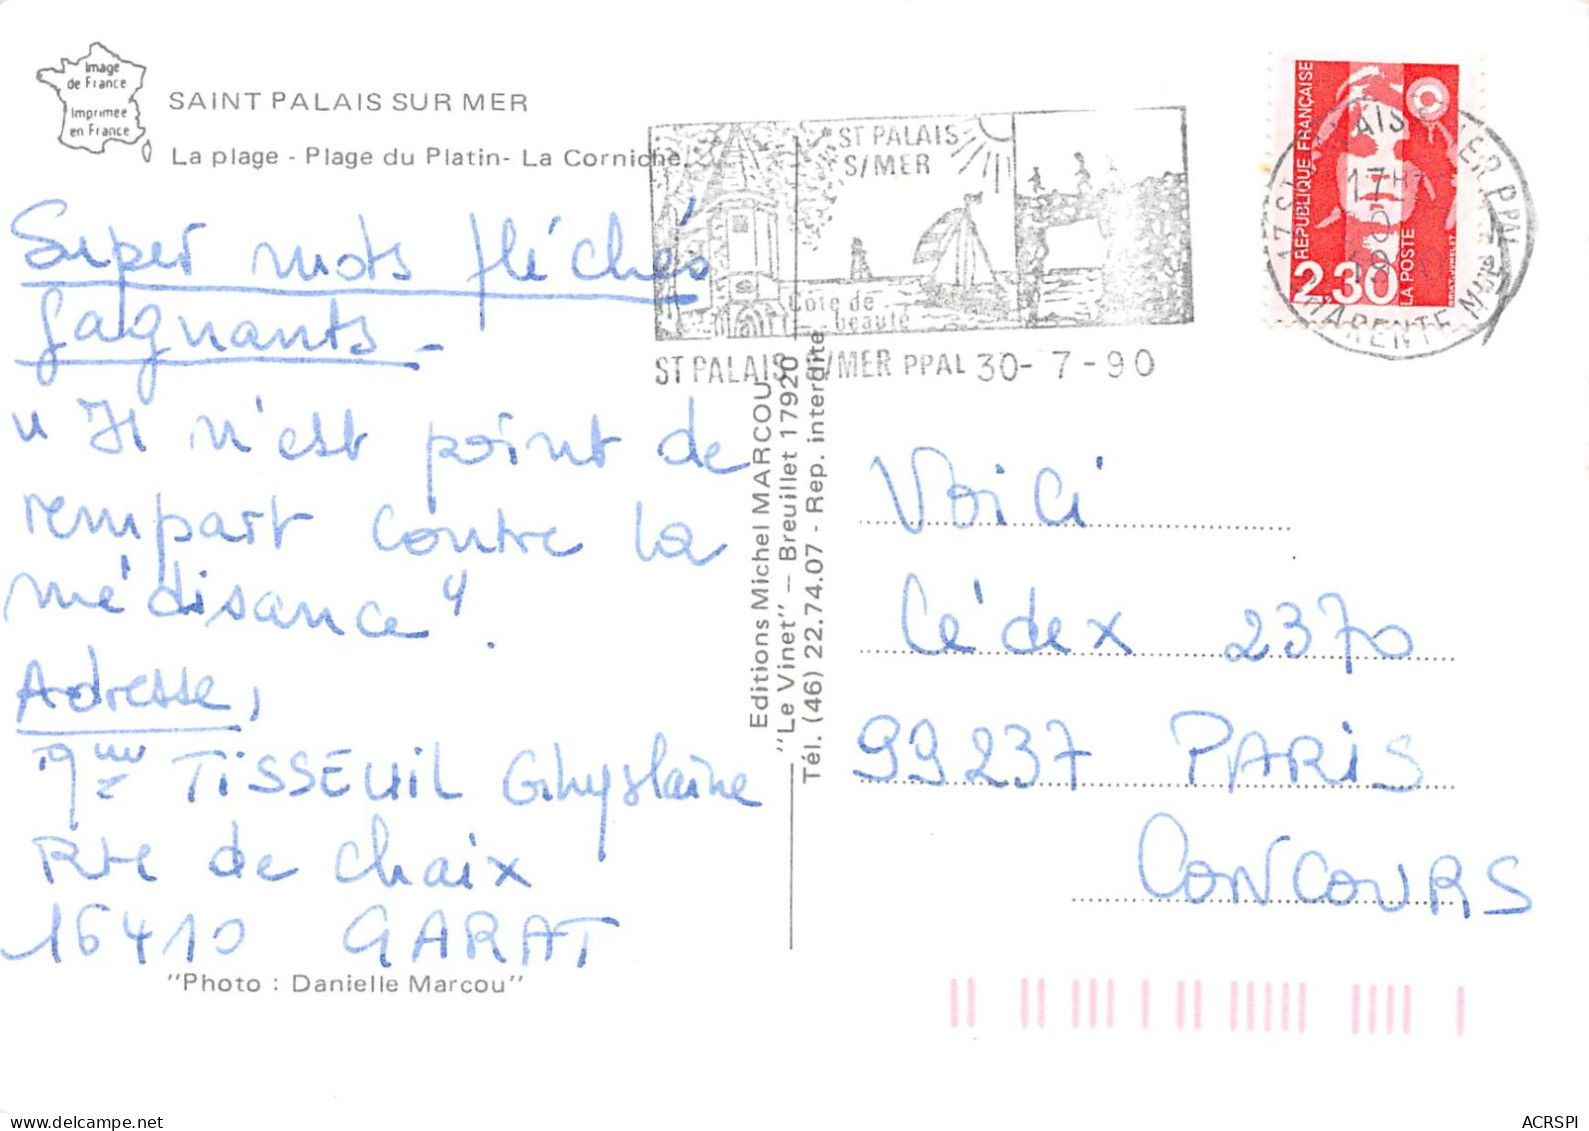 Image
de France
Imprimée
en France
SAINT PALAIS SUR MER
La plage - Plage du Platin- La Corniche.
Super mots fléchés
gagnants -
"Il n'est point de
rempart contre la
médisance".
Adresse,
Mme TISSEUIL Ghyslaine
Rte de Chaix
16410 GARAT
"Photo : Danielle Marcou"
ST PALAIS
S/MER
Côte de
beauté
ST PALAIS S/MER PPAL 30- 7 - 90
Editions Michel MARCOU
"Le Vinet" - Breuillet 17920
Tél. (46) 22.74.07 - Rep. interdite
REPUBLIQUE FRANÇAISE
2,30
LA POSTE
17 ST PALAIS S MER PPAL
17H
CHARENTE Mme
Voici
Cédex 2370
99237 PARIS
CONCOURS
ACRSPI